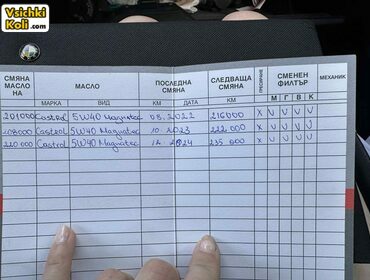 Vsichki
Koli .com
СМЯНА МАСЛО НА
МАСЛО
ПОСЛЕДНА СМЯНА
СЛЕДВАЩА СМЯНА
ПРЕГЛЕД
СМЕНЕН ФИЛТЪР
МЕХАНИК
МАРКА ВИД КМ ДАТА КМ М Г В К
201000 Castrol 5W40 Magnatec 08.2022 216000 X V V V V
208000 Castrol 5W40 Magnatec 10 2023 222 000 X V V V V
220 000 Castrol 5W40 Magnatec 12 2024 235 000 X V V V V